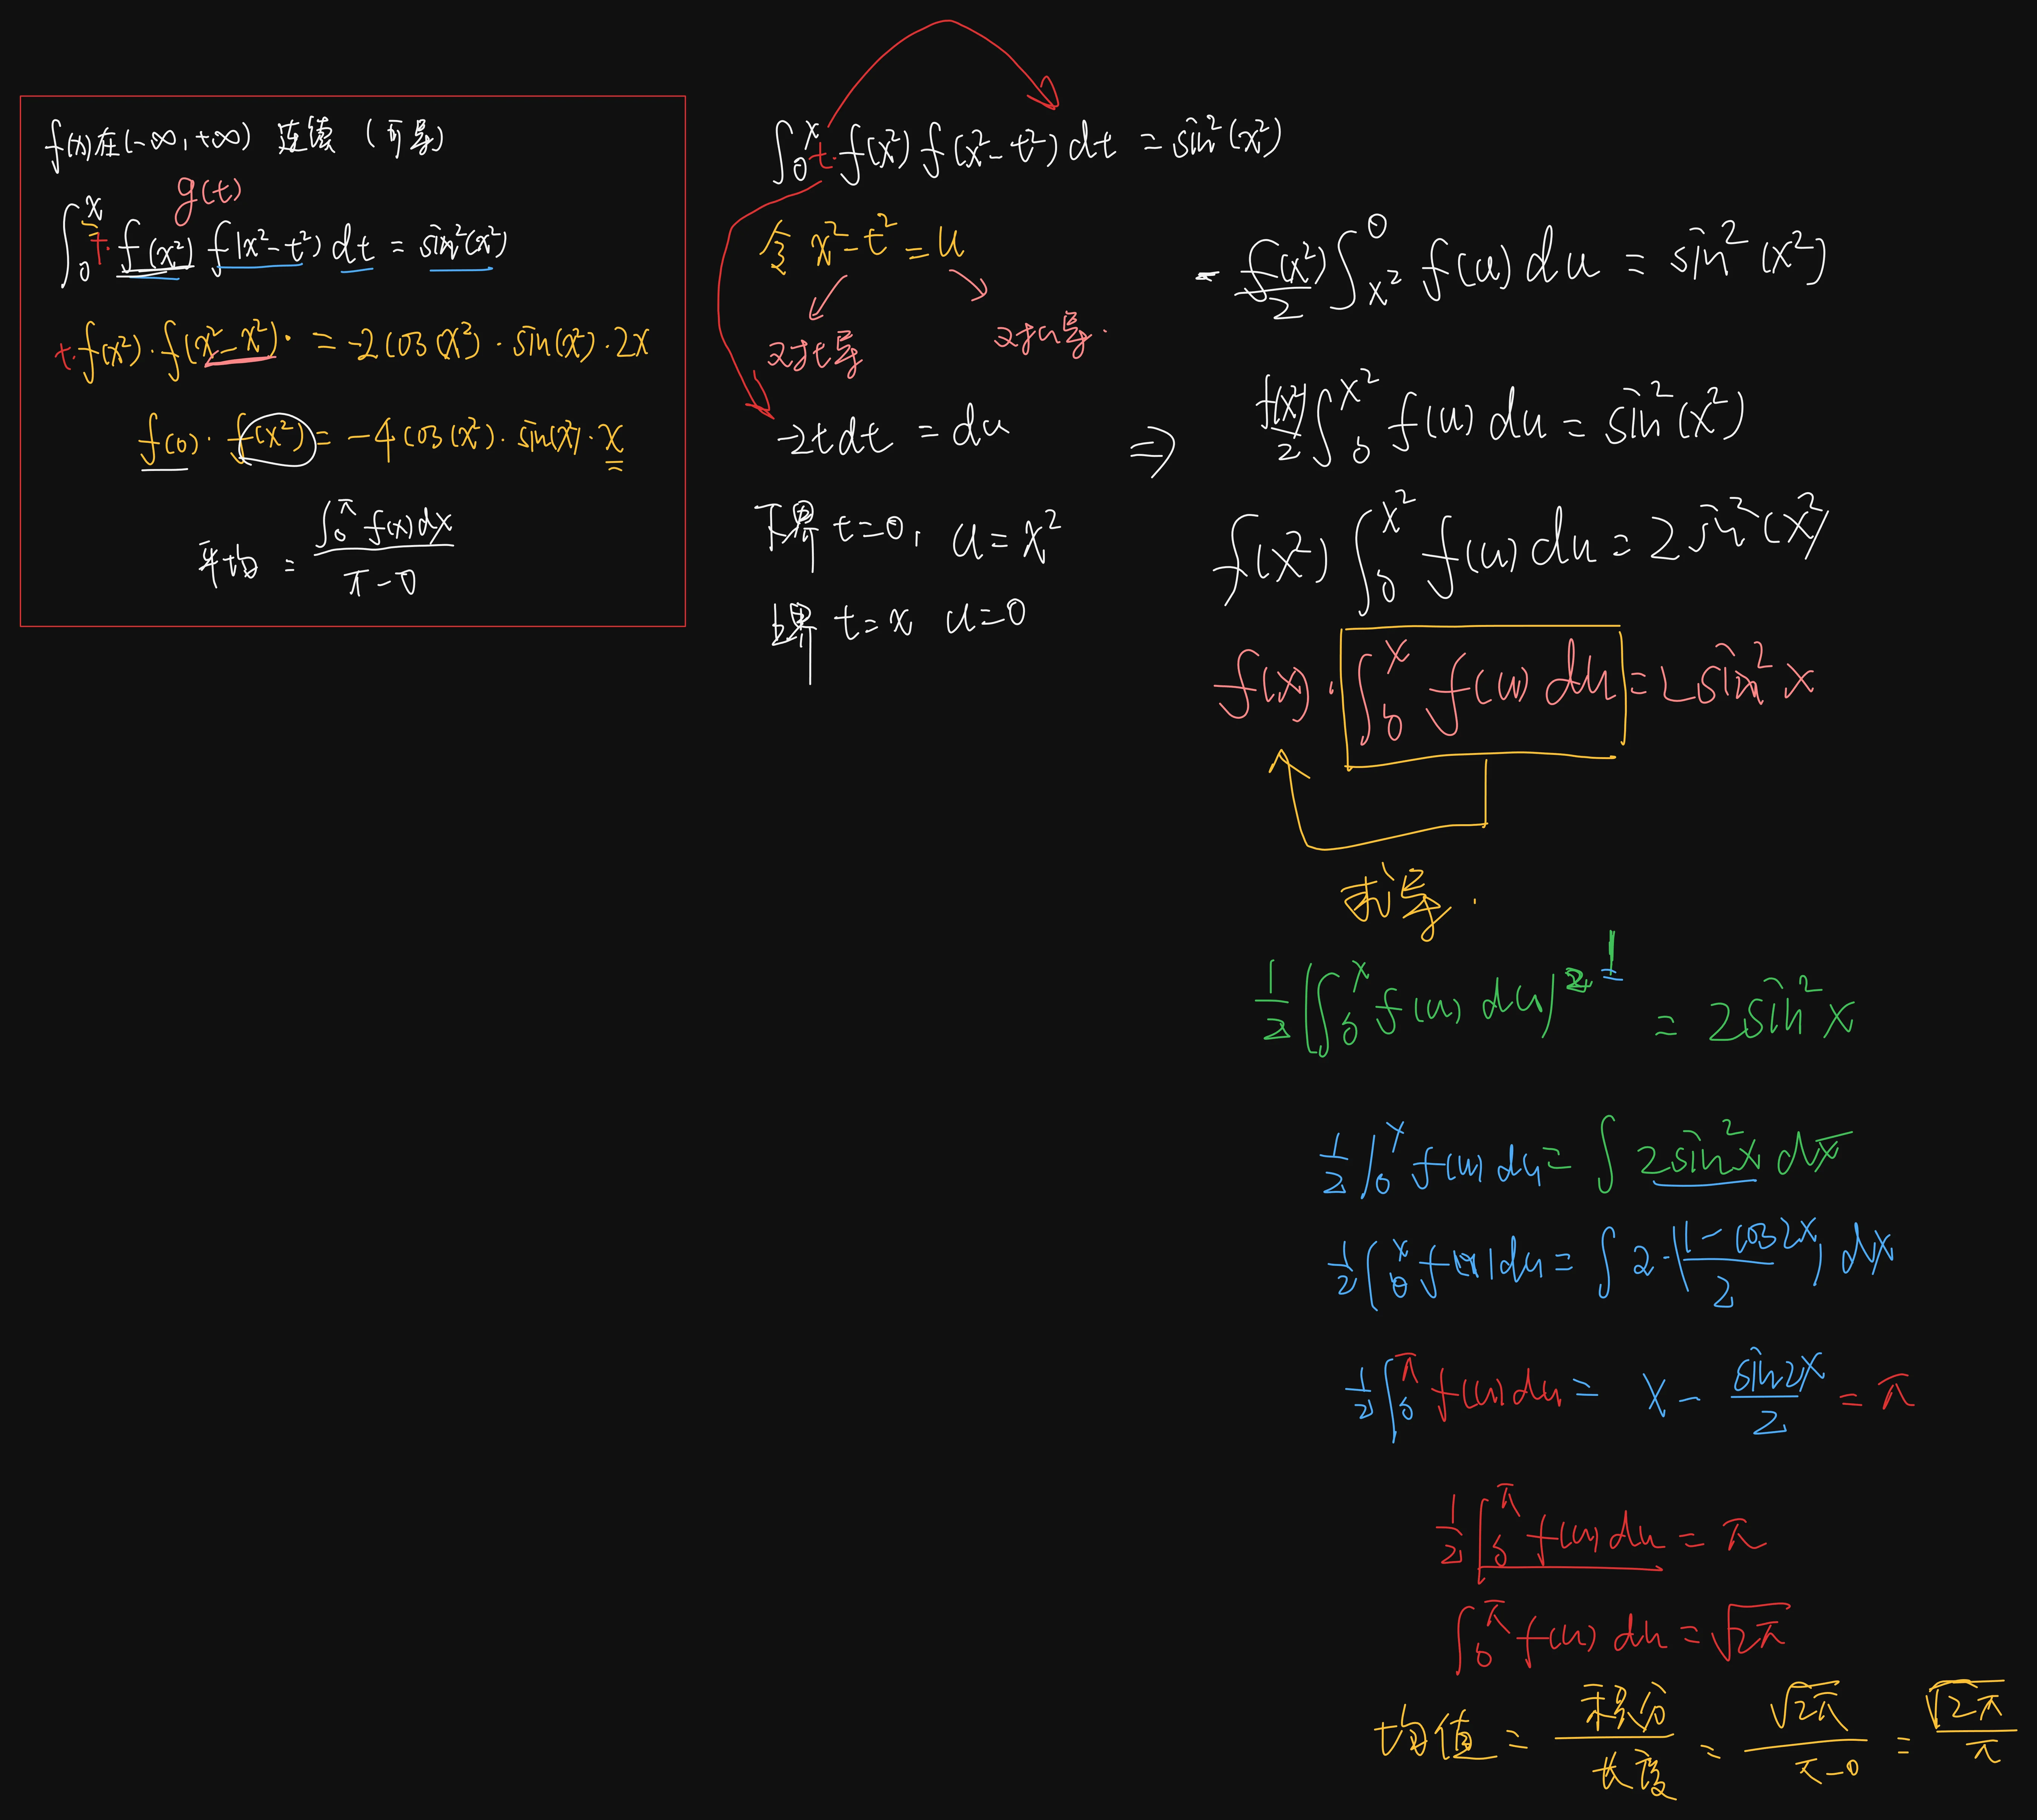 f(x)在(-∞,+∞) 连续 (可导)
g(t)
∫₀ˣ t·f(x²) f(x²-t²) dt = sin²(x²)
t·f(x²)·f(x²-x²)· = -2cos(x²)·sin(x²)·2x
f(0)·f(x²) = -4cos(x²)·sin(x²)·x
平均 = ∫₀^π f(x)dx / (π-0)
∫₀ˣ t·f(x²) f(x²-t²) dt = sin²(x²)
令 x²-t²=u
对t导 对u导.
-2tdt = du
下限 t=0, u=x²
上限 t=x u=0
- f(x²)/2 ∫_{x²}^0 f(u)du = sin²(x²)
⇒ f(x²)/2 ∫₀^{x²} f(u)du = sin²(x²)
f(x²) ∫₀^{x²} f(u)du = 2sin²(x²)
f(x)·∫₀ˣ f(u)du = 2sin²x
求导.
1/2 (∫₀ˣ f(u)du)² = 2sin²x
1/2 ∫₀ˣ f(u)du = ∫ 2sin²x dx
1/2 ∫₀ˣ f(u)du = ∫ 2·(1-cos2x / 2) dx
1/2 ∫₀^π f(u)du = x - sin2x/2 = π
1/2 ∫₀^π f(u)du = π
∫₀^π f(u)du = √2π
均值 = 积分/长度 = √2π/(π-0) = √2π/π